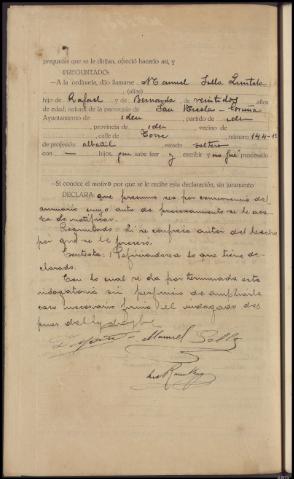 preguntas que se le dirijan, ofreció hacerlo así, y
PREGUNTADO:
—A la ordinaria, dijo llamarse Manuel Sella
(alias)
hijo de Rafael y de Bernarda de veintidos años
de edad, natural de la provincia de Coruña
Ayuntamiento de idem, partido de idem
, provincia de idem vecino de
, calle de Torre número 144-1º
de profesión albañil estado soltero
con — hijos, que sabe leer y escribir y no fué procesado
—Si conoce el motivo por que se le recibe esta declaración, sin juramento
DECLARA: que presume sea por consecuencia del
sumario cuyo auto de procesamiento se le acaba
ca de notificar.
Preguntado: Si se confiesa autor del hecho
por que se le procesa.
Contesta: a lo que tiene de-
clarado.
Con lo cual se da por terminada esta
indagatoria sin perjuicio de ampliarla
caso necesario firma el indagado des-
pues del
Manuel Sella